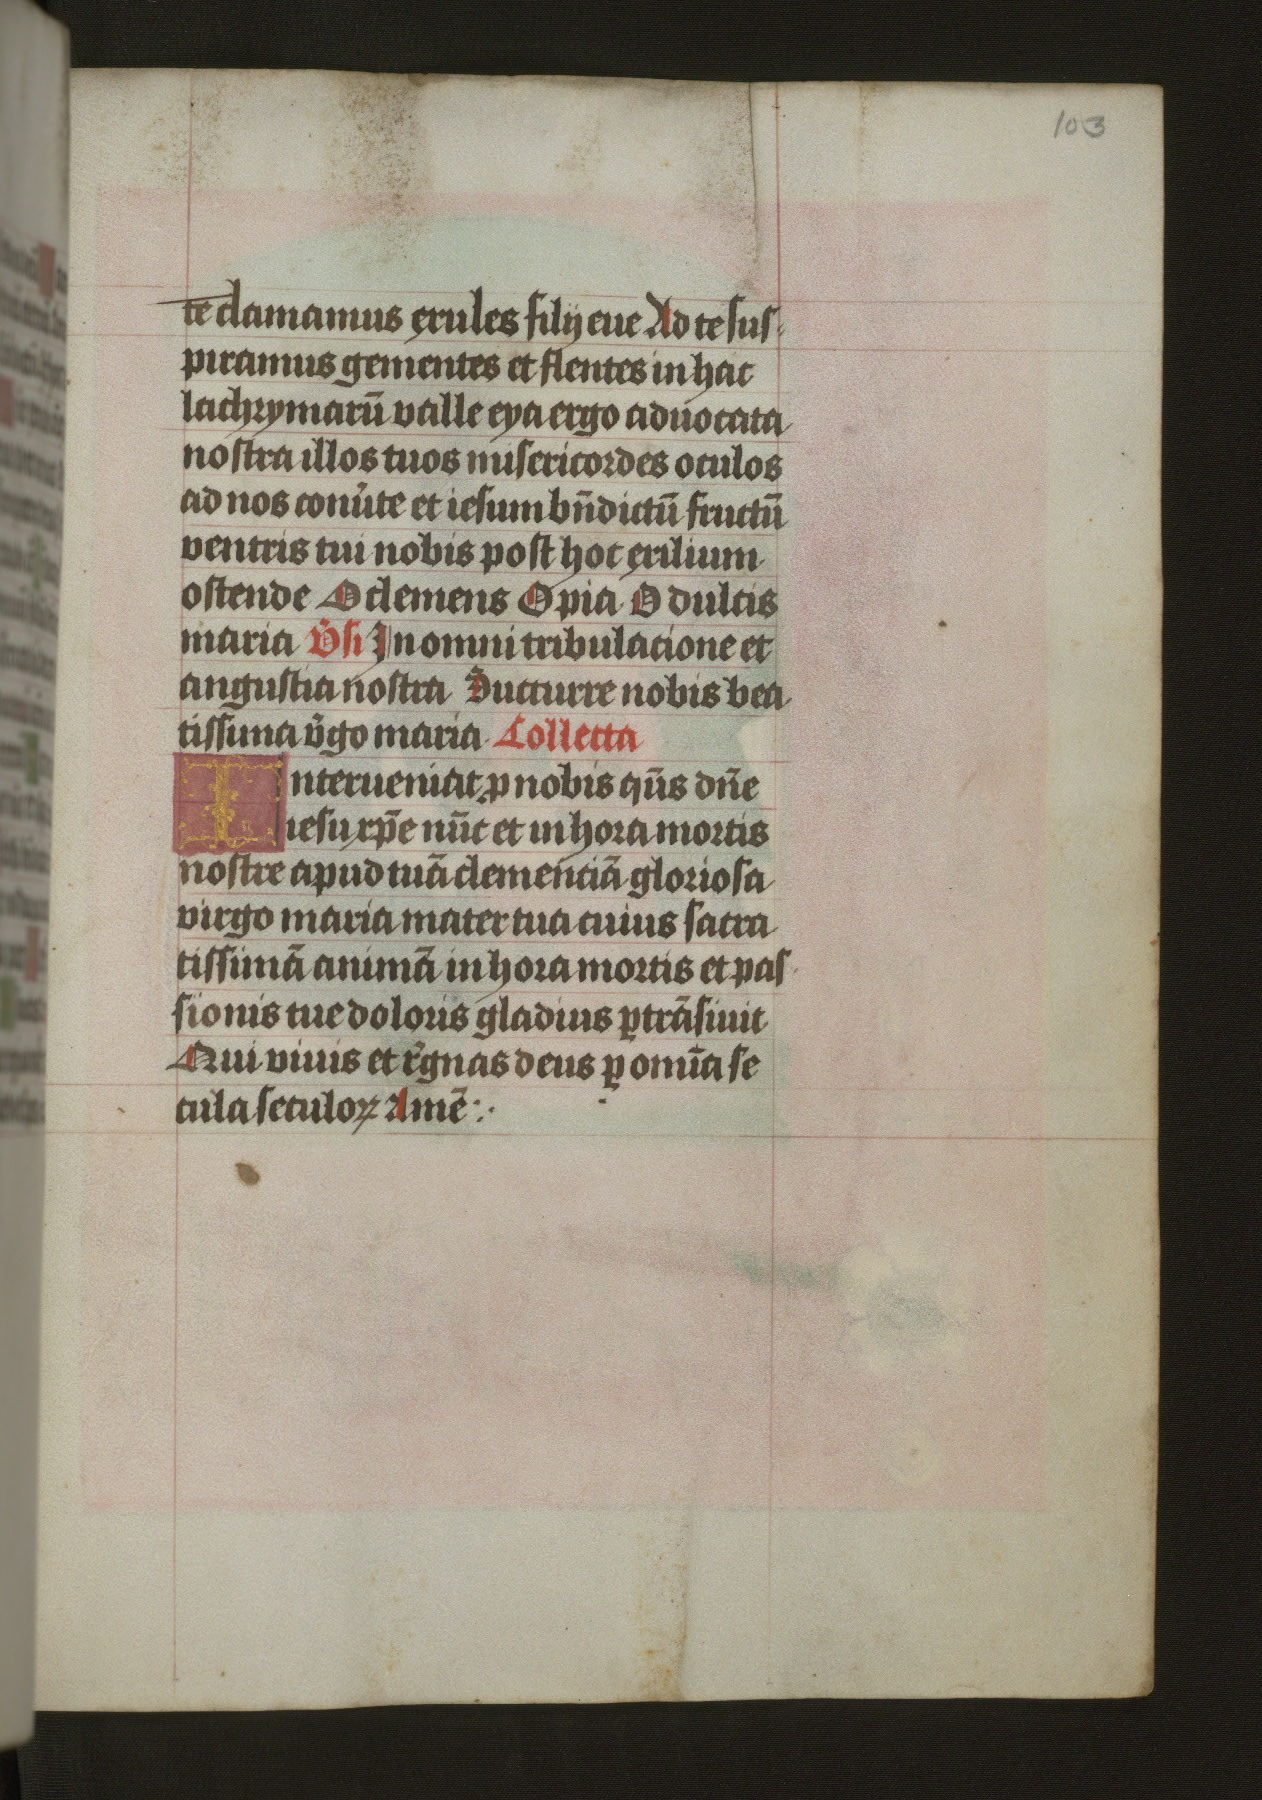 103
te clamamus exules filij eue Ad te sus-
piramus gementes et flentes in hac
lachrymarū valle eya ergo aduocata
nostra illos tuos misericordes oculos
ad nos conu̾te et iesum bn̄dictū fructū
ventris tui nobis post hoc exilium
ostende O clemens O pia O dulcis
maria V̾si In omni tribulacione et
angustia nostra Succurre nobis bea
tissima v̾go maria Collecta
Interueniat ꝓ nobis qūs dn̄e
iesu xp̄e nūc et in hora mortis
nostre apud tuā clemenciā gloriosa
virgo maria mater tua cuius sacra
tissimā animā in hora mortis et pas
sionis tue doloris gladius ꝑtrāsiuit
Qui viuis et r̾gnas deus ꝑ omīa se
cula seculoꝝ Amē